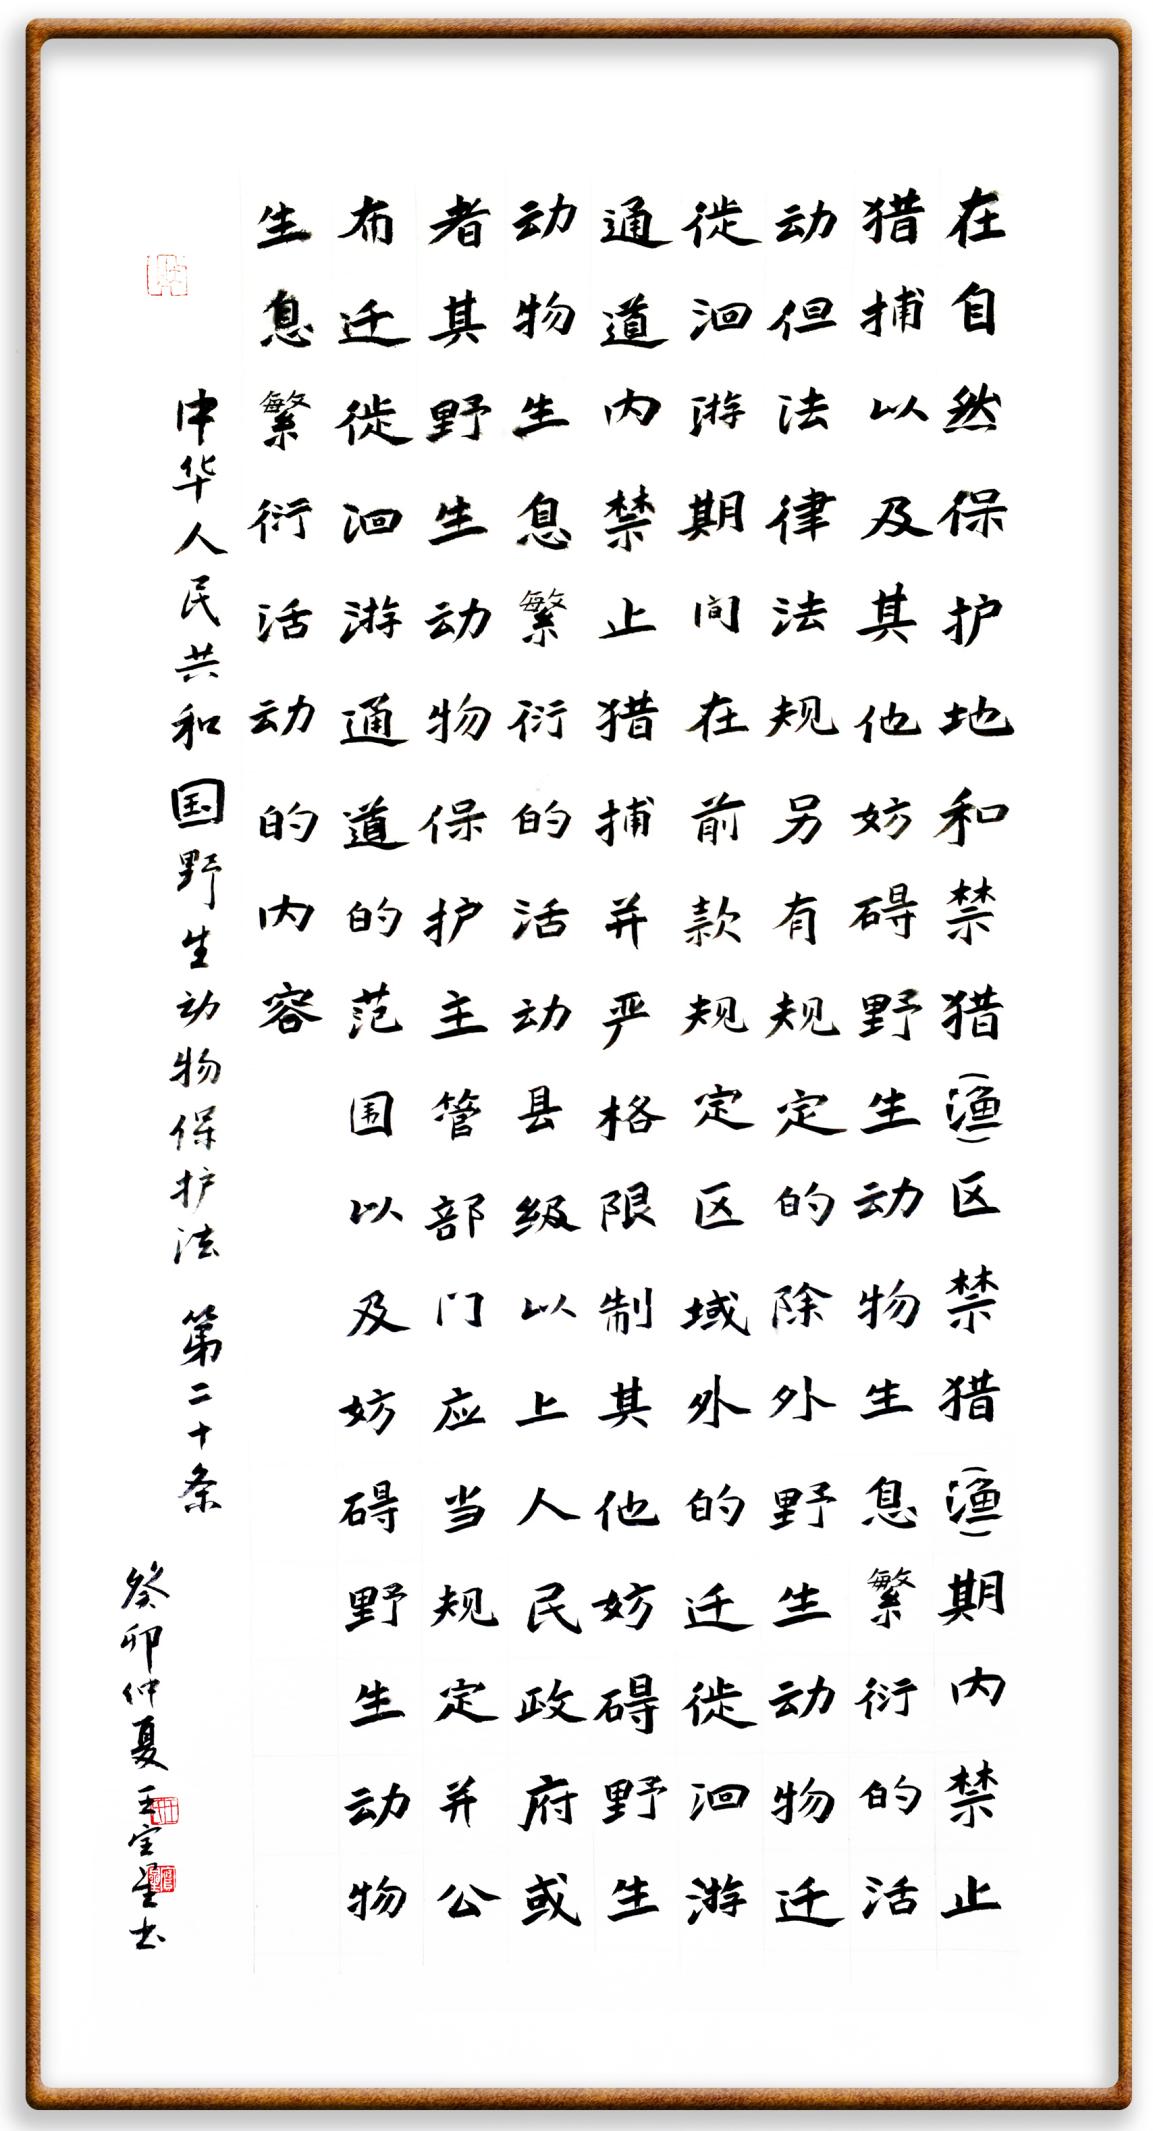 在自然保护地和禁猎(渔)区禁猎(渔)期内禁止
猎捕以及其他妨碍野生动物生息繁衍的活
动但法律法规另有规定的除外野生动物迁
徙洄游期间在前款规定区域外的迁徙洄游
通道内禁止猎捕并严格限制其他妨碍野生
动物生息繁衍的活动县级以上人民政府或
者其野生动物保护主管部门应当规定并公
布迁徙洄游通道的范围以及妨碍野生动物
生息繁衍活动的内容
中华人民共和国野生动物保护法 第二十条
癸卯仲夏王宝星书